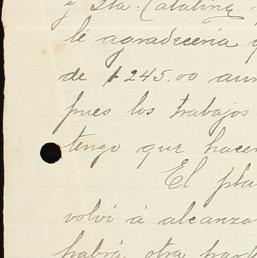 y Sta. Catalina
le agradecería
de $245.00
pues los trabajos
tengo que hacer
El pla
volví á alcanza
habrá otra